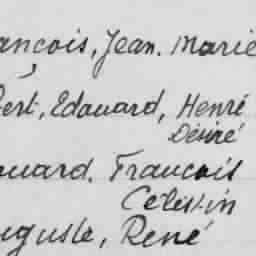 ancois, Jean. Marie
bert, Edouard, Henri
Désiré
ouard. Francois
Celestin
uguste, René